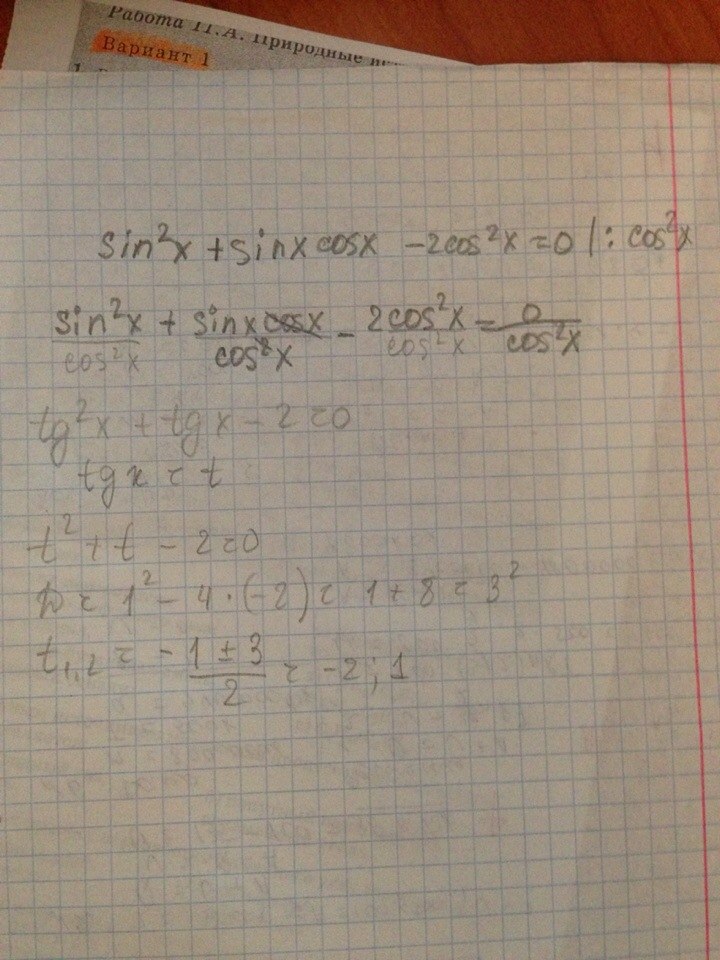 Работа П.А. Природные
Вариант 1
sin²x + sinx cosx - 2cos²x = 0 | : cos²x
sin²x/cos²x + sinx cosx/cos²x - 2cos²x/cos²x = 0/cos²x
tg²x + tgx - 2 = 0
tgx = t
t² + t - 2 = 0
D = 1² - 4 · (-2) = 1 + 8 = 3²
t₁,₂ = - 1 ± 3/2 = -2; 1